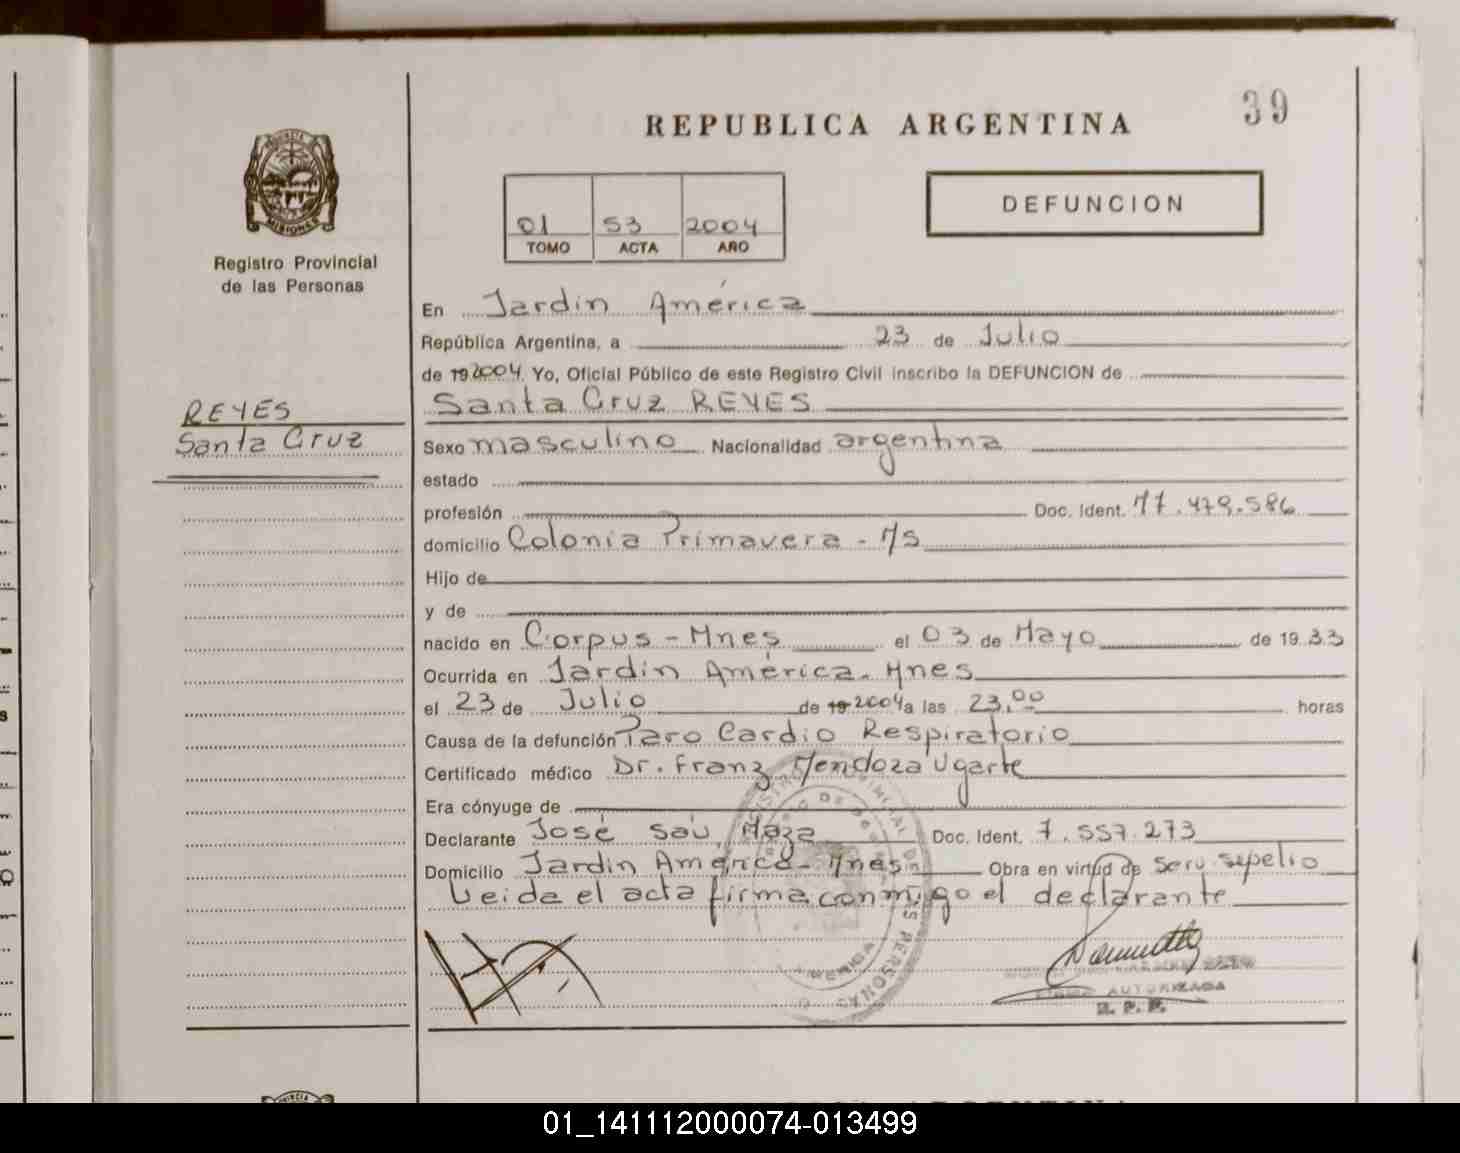 39
REPUBLICA ARGENTINA
PROVINCIA
MISIONES
Registro Provincial
de las Personas
01 53 2004
TOMO ACTA AÑO
DEFUNCION
En Jardin América
República Argentina, a 23 de Julio
de 192004. Yo, Oficial Público de este Registro Civil inscribo la DEFUNCION de
REYES
Santa Cruz
Santa Cruz REYES
Sexo masculino Nacionalidad argentina
estado
profesión Doc. Ident. 77.478.586
domicilio Colonia Primavera - Ms
Hijo de
y de
nacido en Corpus - Mnes el 03 de Mayo de 1933
Ocurrida en Jardin América - Mnes
el 23 de Julio de 19 2004 a las 23,00 horas
Causa de la defunción Paro Cardio Respiratorio
Certificado médico Dr. Franz Mendoza Ugarte
Era cónyuge de
Declarante José Saú Maza Doc. Ident. 7.557.273
Domicilio Jardin América - Mnes Obra en virtud de Serv. sepelio
Leida el acta firma conmigo el declarante
FIRMA AUTORIZADA
R. P. P.
01_141112000074-013499